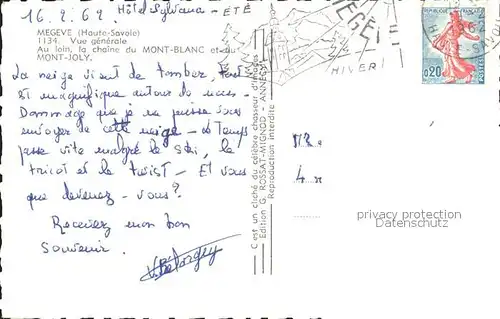 16.2.62. Hôtel Sylvana - ÉTÉ
MEGEVE (Haute-Savoie)
1134. Vue générale
Au loin, la chaîne du MONT-BLANC et du
MONT-JOLY.
La neige vient de tomber, tout
est magnifique autour de nous -
Dommage que je ne puisse vous
envoyer de cette neige - Le Temps
passe vite malgré le ski, le
tricot et le twist - Et vous
que devenez-vous?
Recevez mon bon
Souvenir.
C'est un cliché du célèbre chasseur d'images
Edition G. ROSSAT-MIGNOD - ANNECY
Reproduction interdite
MEGEVE
HIVER
REPUBLIQUE FRANÇAISE
0,20
POSTES
privacy protection
Datenschutz